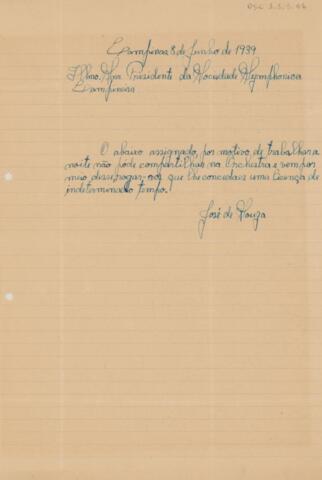 OSC 2.3.3.46
Campinas 8 de Junho de 1939
Illmo. Snr. Presidente da Sociedade Symphonica
Campinas
O abaixo assignado, por motivo de trabalhar a
noite não póde compartilhar na Orchestra e vem por
meio desse rogar-vos que lhe concedaes uma licença de
indeterminado tempo.
José de Souza